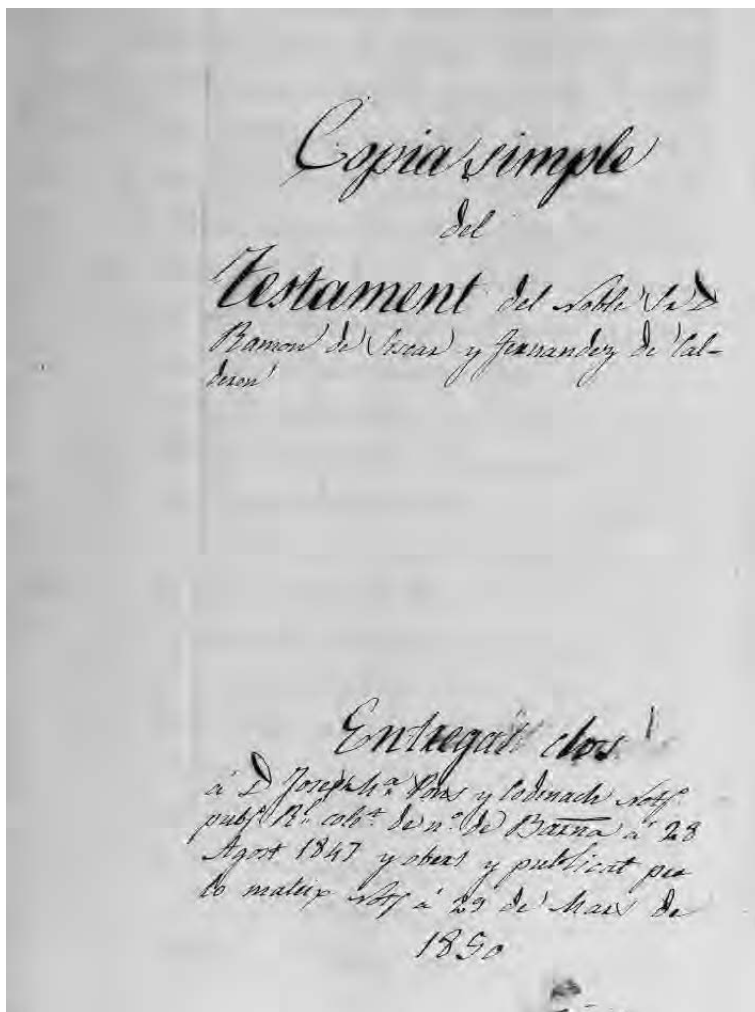 Copia simple
del
Testament del Noble Sr. D.
Ramon de Siscar y Fernandez de Cal-
deron
Entregat clos
á D. Joseph Mª. Pons y Codinach Notº.
pubº. Rl. colt. de nº. de Barna á 28
Agost 1847 y obert y publicat per
lo mateix Notº á 29 de Mars de
1850